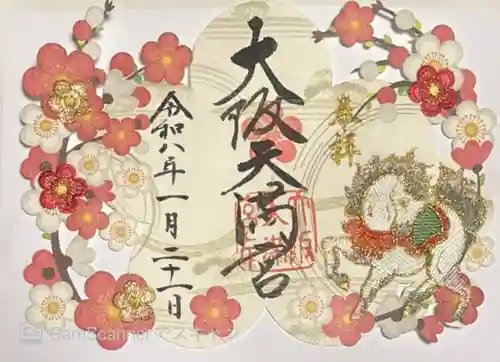 奉拝
大阪天満宮
令和八年一月二十一日
CamScannerでスキャン